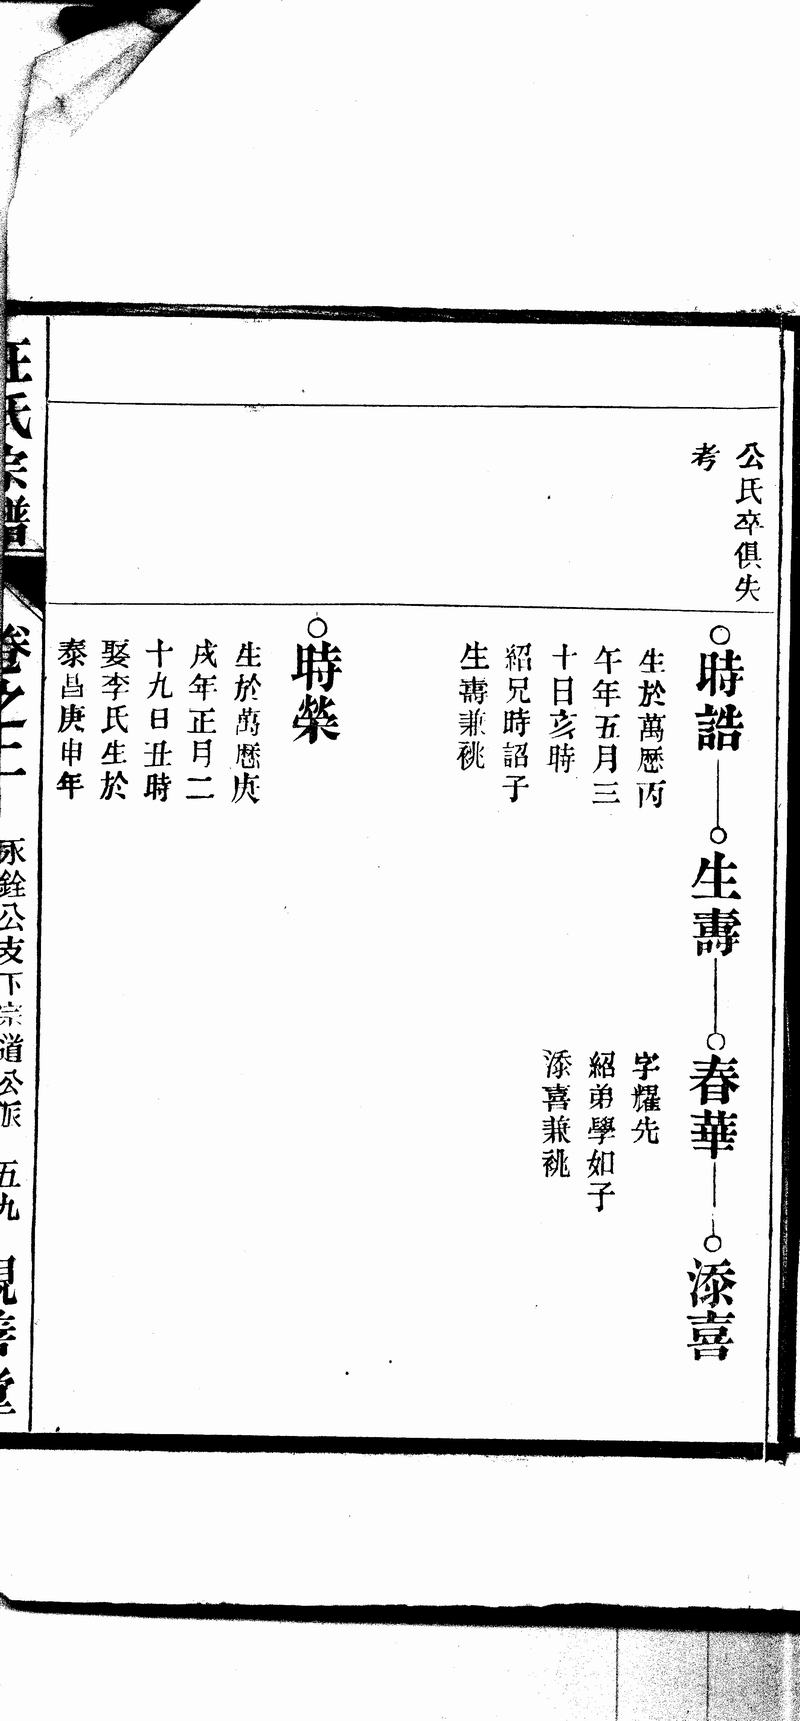 公氏卒俱失
考
時誥
生於萬歷丙
午年五月三
十日亥時
紹兄時詔子
生壽兼祧
生壽
春華
字耀先
紹弟學如子
添喜兼祧
添喜
時榮
生於萬歷庚
戌年正月二
十九日丑時
娶李氏生於
泰昌庚申年
汪氏宗譜
卷之二
永銓公支下宗道公派
五九
親善堂